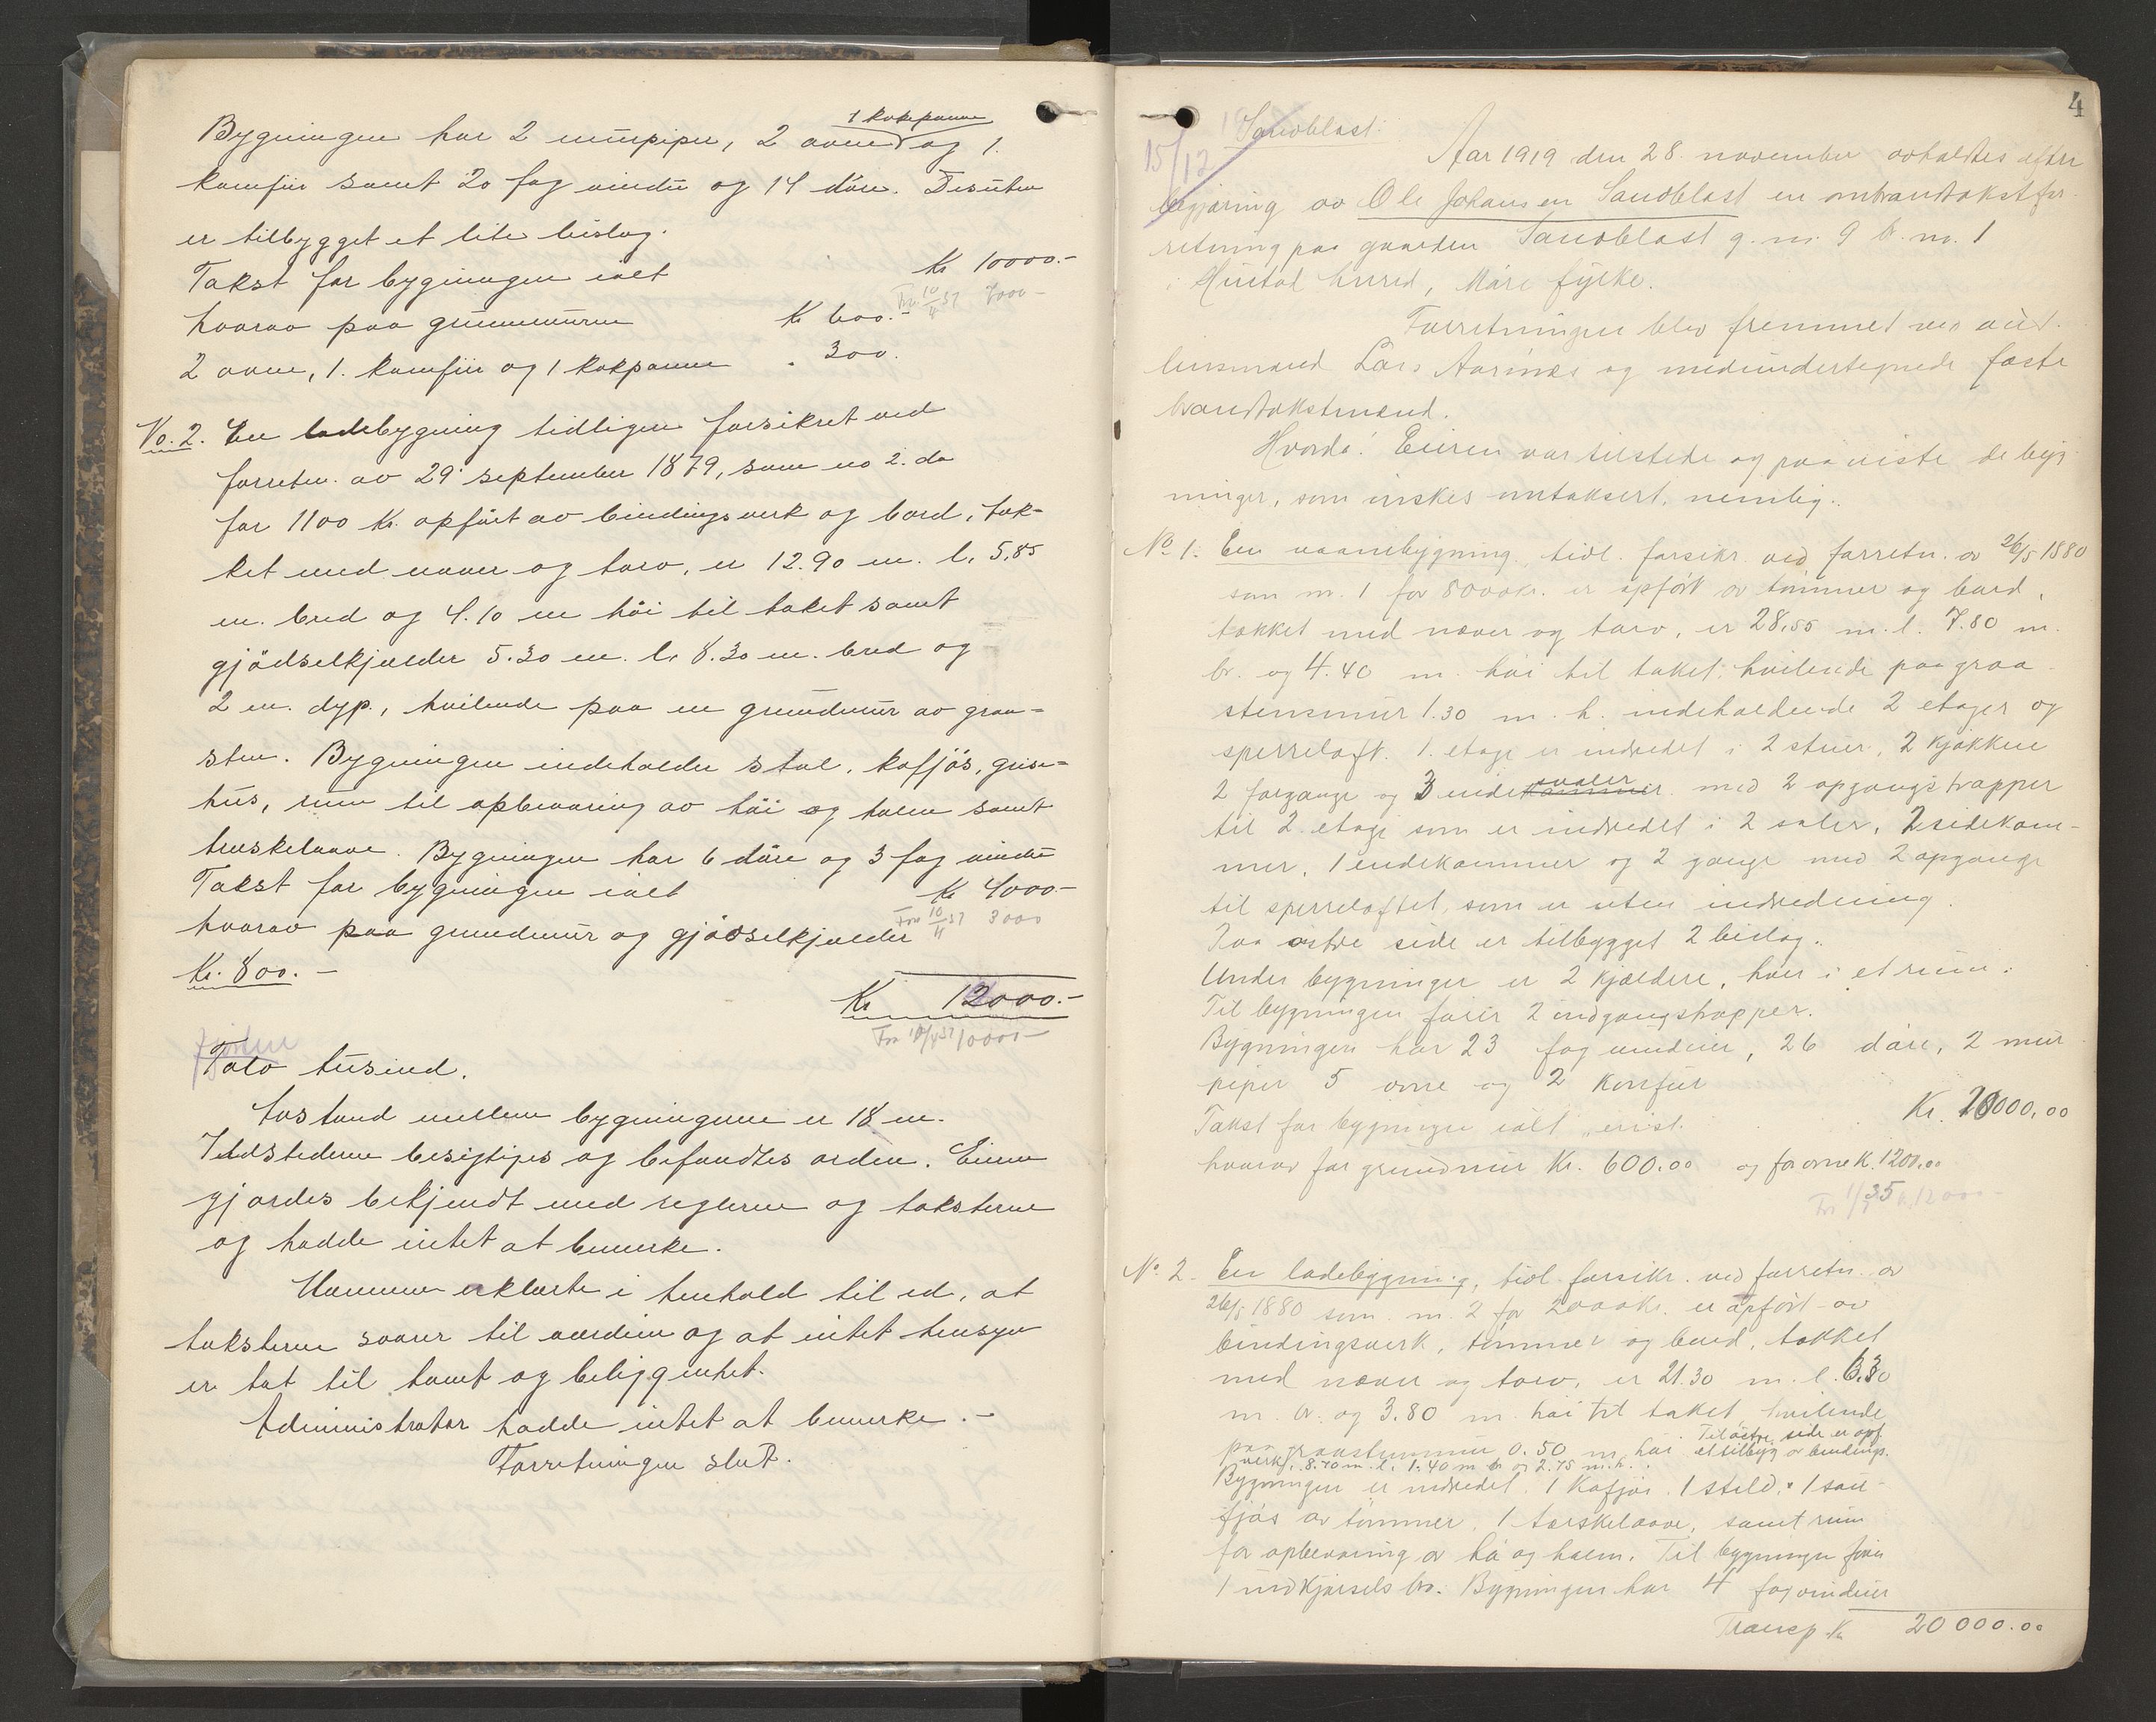 1 kokpanne
Bygningen har 2 murpiper, 2 ovne og 1.
komfür samt 20 fag vindu og 14 döre. Desuten
er tilbygget et lite bislag.
Takst for bygningen ialt Kr 10000.-
10/4 37 7000-
hvorav paa grunnmuren Kr 600.-
2 ovne, 1. komfür og 1 kokpanne " 300.
No. 2. En ladebygning tidligere forsikret ved
forretn. av 29 september 1879, som no 2. da
for 1100 Kr. opfört av bindingsverk og bord, tæk-
ket med næver og torv, er 12.90 m. l. 5,85
m. bred og 4.10 m höi til taket samt
gjödselkjælder 5.30 m. l. 8.30 m. bred og
2 m. dyp., hvilende paa en grundmur av graa-
sten. Bygningen indeholder stal, kofjös, grise-
hus, rum til opbevaring av höi og halm samt
træskelaave. Bygningen har 6 döre og 3 fag vindu
Takst for bygningen ialt Kr 4000-
10/4 37 3000
hvorav paa grundmur og gjödselkjælder
Kr. 800.-
Kr 12000.-
10/4 37 10000-
Fjorten
Tolv tusind.
Avstand mellem bygningerne er 18 m.
Ildstederne besigtiges og befandtes orden. Eieren
gjordes bekjendt med reglerne og taksterne
og hadde intet at bemerke.
Mænnene erklærte i henhold til ed, at
taksterne svarer til værdien og at intet hensyn
er tat til tomt og beliggenhet.
Administrator hadde intet at bemerke.-
Forretningen slut.
4
Sandblast.
15/12
Aar 1919 den 28. november avholdtes efter
begjæring av Ole Johansen Sandblast en ombrandtakstfor-
retning paa gaarden Sandblast g.nr. 9 b.nr. 1
i Hustad herred, Möre fylke.
Forretningen blev fremmet ved
lensmand Lars Aarnes og medundertegnede faste
brandtakstmænd.
Hvorda! Eieren var tilstede og paaviste de byg-
ninger, som önskes omtaksert. nemlig.
No 1. En vaanebygning tidl. forsikr. ved forretn. av 26/5 1880
som nr. 1 for 8000 kr. er opfört av tömmer og bord,
tækket med næver og torv, er 28,55 m. l. 7.80 m.
br. og 4.40 m. höi til taket hvilende paa graa-
stensmur 1.30 m. h. indeholdende 2 etager og
sperreloft. 1. etage er indredet i 2 stuer, 2 kjökken
2 forgange og 3 endesvaler med 2 opgangstrapper
til 2. etage som er indredet i 2 saler, 2 sidekam-
mer, 1 endekammer og 2 gange med 2 opgange
til sperreloftet, som er uten indredning.
Paa östre side er tilbygget 2 bislag.
Under bygningen er 2 kjældere, hver i et rum.
Til bygningen förer 2 indgangstrapper.
Bygningen har 23 fag vinduer, 26 döre, 2 mur
piper 5 ovne og 2 komfür
Takst for bygningen ialt Kr. 20000,00
hvorav for grundmur Kr. 600.00 og for ovne K. 1200,00
35 K. 12000-
No. 2. En ladebygning, tidl. forsikr. ved forretn. av
26/5 1880 som nr. 2 for 2000 kr. er opfört av
bindingsverk, tömmer og bord, tækket
med næver og torv, er 21.30 m. l.
m br. og 3.80 m höi til taket hvilende
Til östre side er opf.
paa graastensmur 0.50 m. höi et tilbyg av bindings-
verk. 8.70 m. l. 1.40 m br og 2.75 m. h.
Bygningen er indredet 1 Kofjös 1 stald, 1 sau-
fjös av tömmer, 1 tærskelaave, samt rum
for opbevaring av hö og halm. Til bygningen förer
1 indkjörselsbro. Bygningen har 4 fag vinduer
Transp. Kr 20 000.00